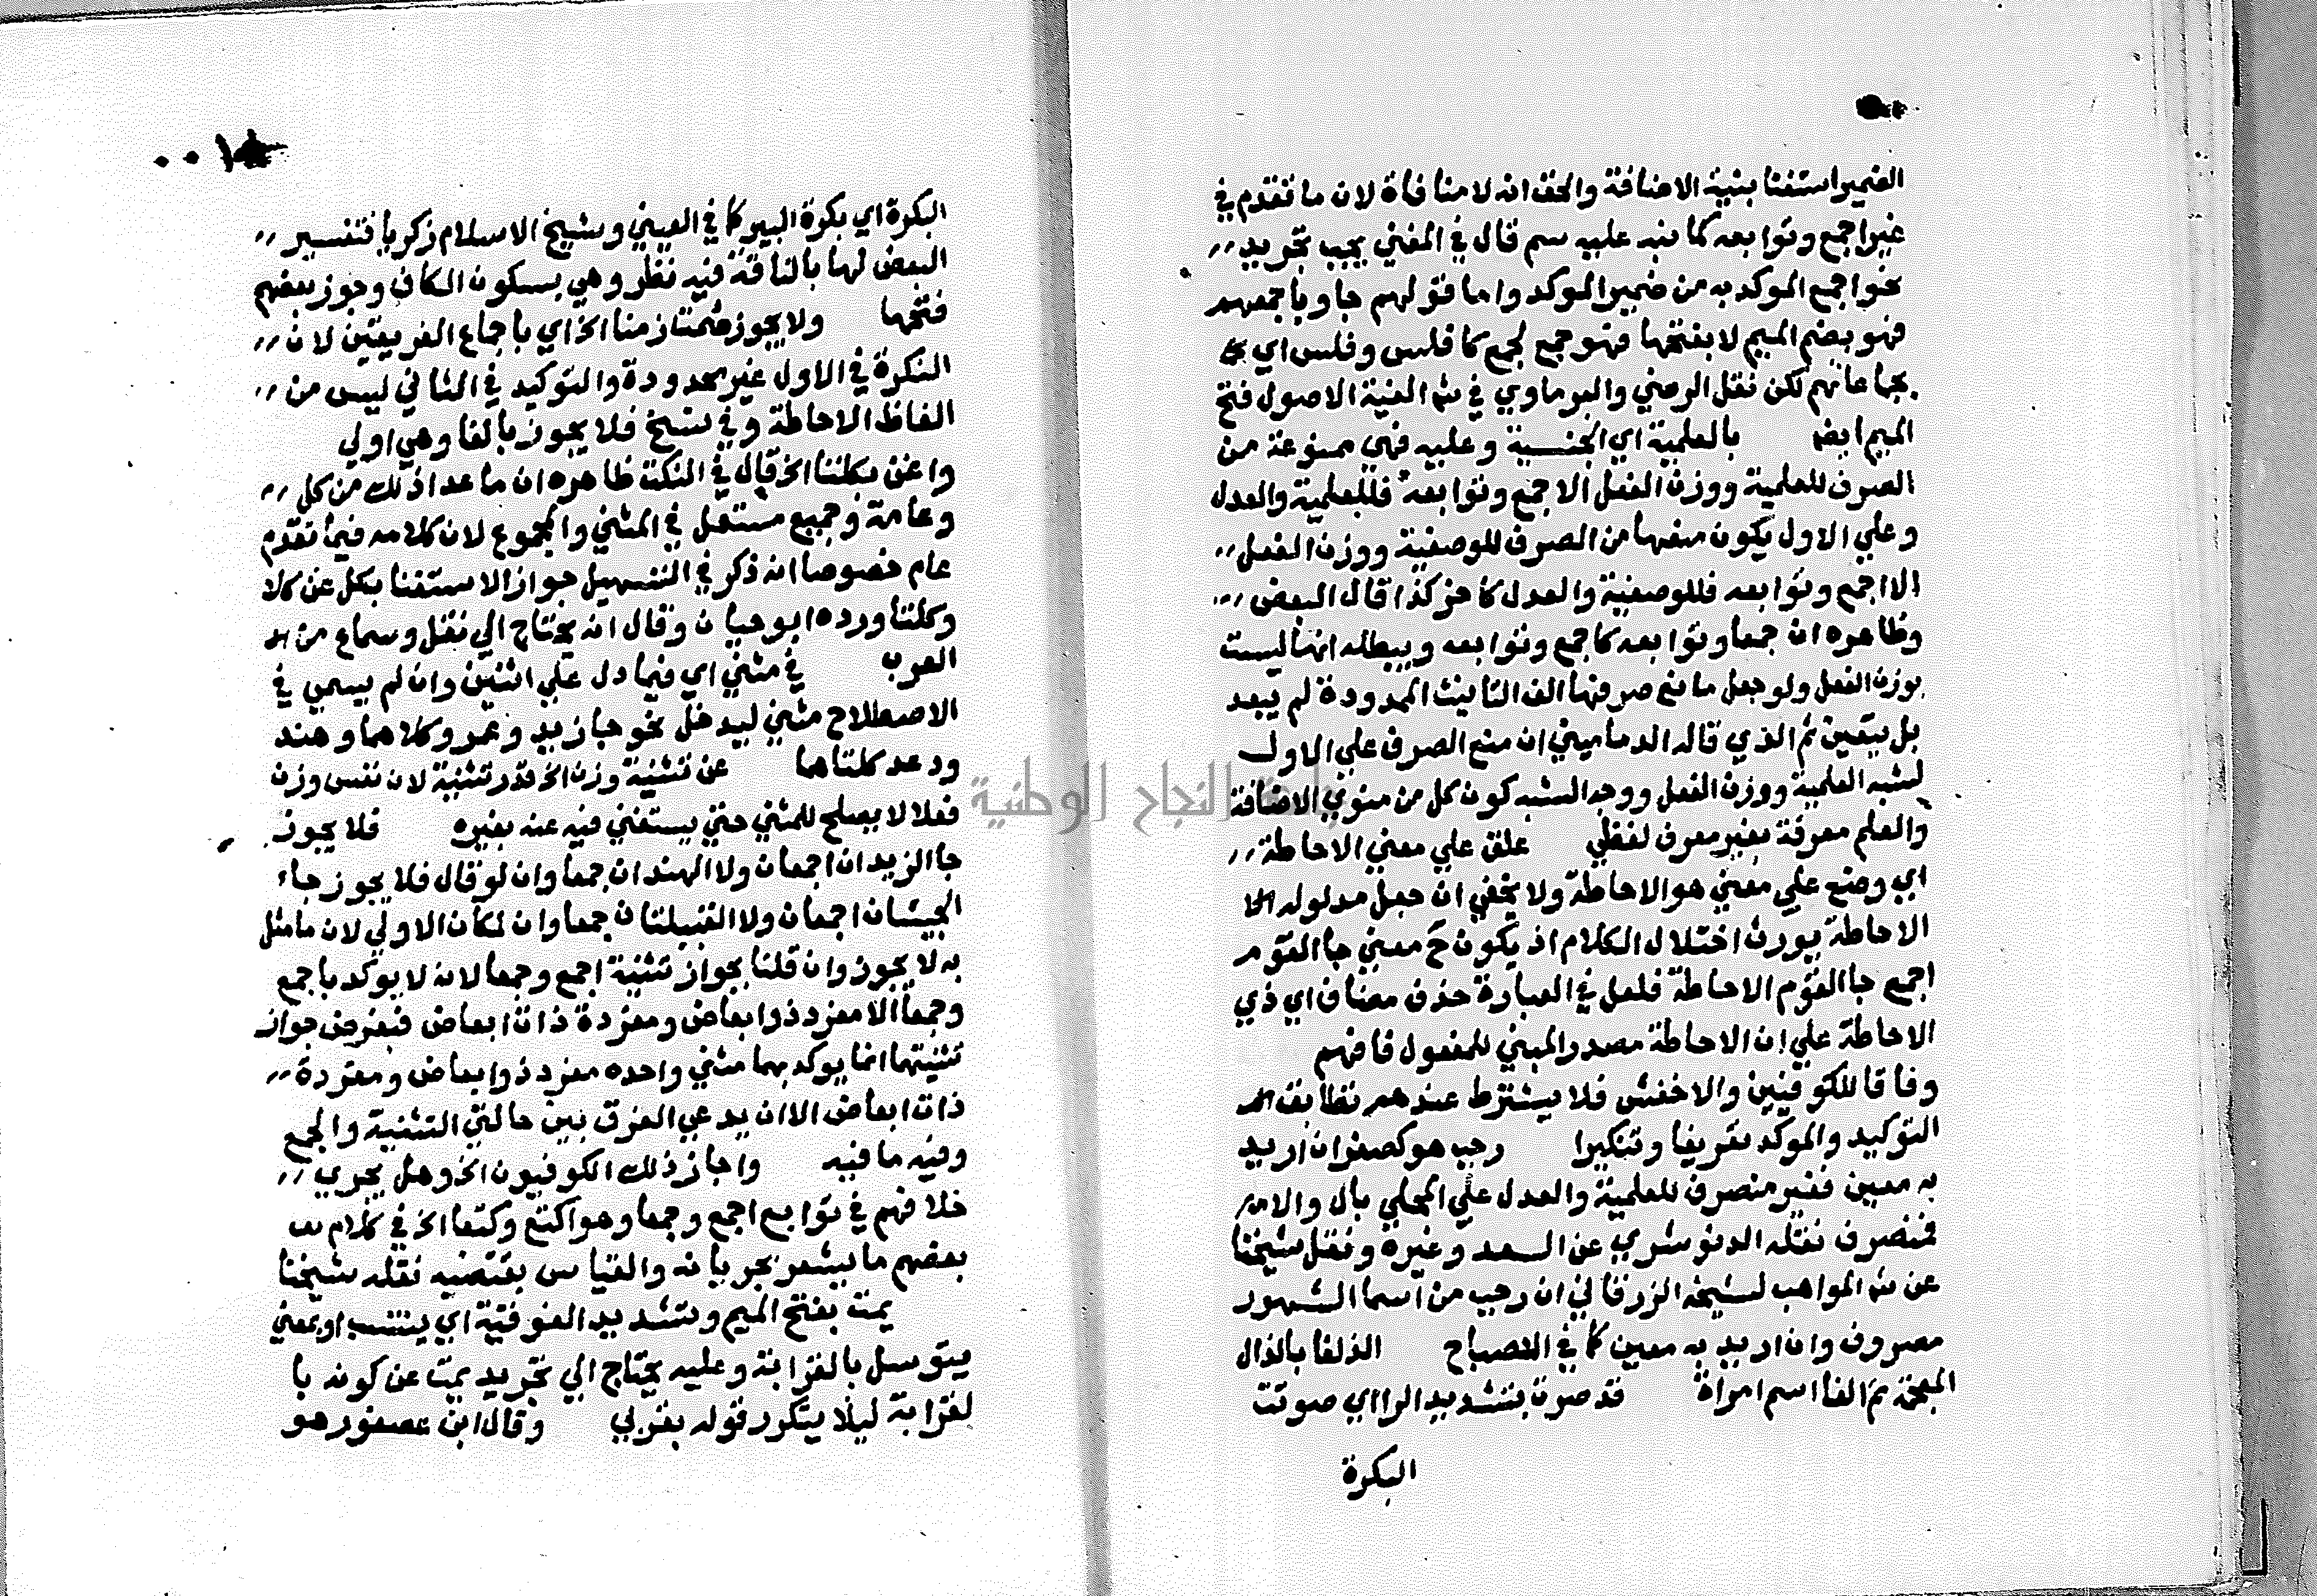 الضمير استغنا بنية الاضافة والحق انه لا منافاة لان ما تقدم في
غير اجمع وتوابعه كما نبه عليه سم قال في المغني يجب تجريد
نحو اجمع الموكد به من ضمير الموكد واما قولهم جاو باجمعهم
فهو بضم الميم لا بفتحها فهو جمع لجمع كافلس وفلس اي
بجماعاتهم لكن نقل الرضي والبرماوي في شرح الفية الاصول فتح
الميم ايضا بالعلمية اي الجنسية وعليه فهي ممنوعة من
الصرف للعلمية ووزن الفعل الا جمع وتوابعه فللعلمية والعدل
وعلي الاول يكون منعها من الصرف للوصفية ووزن الفعل
الا اجمع وتوابعه فللوصفية والعدل كاخر كذا قال البعض
وظاهره ان جمعا وتوابعه كاجمع وتوابعه ويبطله انها ليست
بوزن الفعل ولو جعل مانع صرفها الف التانيث الممدودة لم يبعد
بل يتعين ثم الذي قاله الدماميني ان منع الصرف علي الاول
لشبه العلمية ووزن الفعل ووجه الشبه كون كل من منوي الاضافة
والعلم معرفة بغير معرف لفظي علق علي معني الاحاطة
اي وضع علي معني هو الاحاطة ولا يخفي ان جعل مدلوله
الاحاطة يورث اختلال الكلام اذ يكون ح معني جا القوم
اجمع جا القوم الاحاطة فلعل في العبارة حذف مضاف اي ذي
الاحاطة علي ان الاحاطة مصدر المبني للمفعول فافهم
وفاقا للكوفيين والاخفش فلا يشترط عندهم تطابق
التوكيد والموكد تعريفا وتنكيرا رجب هو كصفر ان اريد
به معين فغير منصرف للعلمية والعدل علي المحلي بال والا
فمنصرف نقله الدنوشري عن السعد وغيره ونقل شيخنا
عن شرح المواهب لشيخه الزرقاني ان رجب من اسما الشهور
مصروف وان اريد به معين كما في المصباح الذلفا بالذال
المعجمة ثم الفا اسم امراة قد صرت بتشديد الرا اي صوتت
البكرة
٠٠١
البكرة اي بكرة البير كما في العيني وشيخ الاسلام زكريا فتفسير
البعض لها بالناقة فيه نظر وهي بسكون الكاف وجوز بعضهم
فتحها ولا يجوز صمت زمنا الخ اي باجماع الفريقين لان
النكرة في الاول غير محدودة والتوكيد في الثاني ليس من
الفاظ الاحاطة وفي نسخ فلا يجوز بالفا وهي اولي
واغن بكلتا الخ قال في النكت ظاهره ان ما عدا ذلك من كل
وعامة وجميع مستعمل في المثني والمجموع لان كلامه فيما تقدم
عام خصوصا انه ذكر في التسهيل جواز الاستغنا بكل عن كلا
وكلتا ورده ابو حيان وقال انه يحتاج الي نقل وسماع من
العرب في مثني اي فيما دل علي اثنين وان لم يسمي في
الاصطلاح مثني ليدخل نحو جا زيد وعمرو كلاهما وهند
ودعد كلتاهما عن تثنية وزن الخ قدر تثنية لان نفس وزن
فعلا لا يصلح للمثني حتي يستغني فيه عنه بغيره فلا يجوز
جا الزيدان اجمعان ولا الهندان جمعاوان لو قال فلا يجوز جاء
الجيشان اجمعان ولا القبيلتان جمعاوان لكان الاولي لان ما مثل
به لا يجوز وان قلنا بجواز تثنية اجمع وجمعا لانه لا يوكد باجمع
وجمعا الا مفرد ذو ابعاض ومفردة ذات ابعاض فبفرض جواز
تثنيتها انما يوكد بهما مثني واحده مفرد ذو ابعاض ومفردة
ذات ابعاض الا ان يدعي الفرق بين حالتي التثنية والجمع
وفيه ما فيه واجاز ذلك الكوفيون الخ وهل يجري
خلافهم في توابع اجمع وجمعا وهو اكتع وكتعا الخ في كلام
بعضهم ما يشعر بجريانه والقياس يقتضيه نقله شيخنا
يمت بفتح الميم وتشديد الفوقية اي ينتسب او بمعني
يتوسل بالقرابة وعليه يحتاج الي تجريد يمت عن كونه با
لقرابة ليلا يتكرر قوله بقربي وقال ابن عصفور هو
جامعة النجاح الوطنية